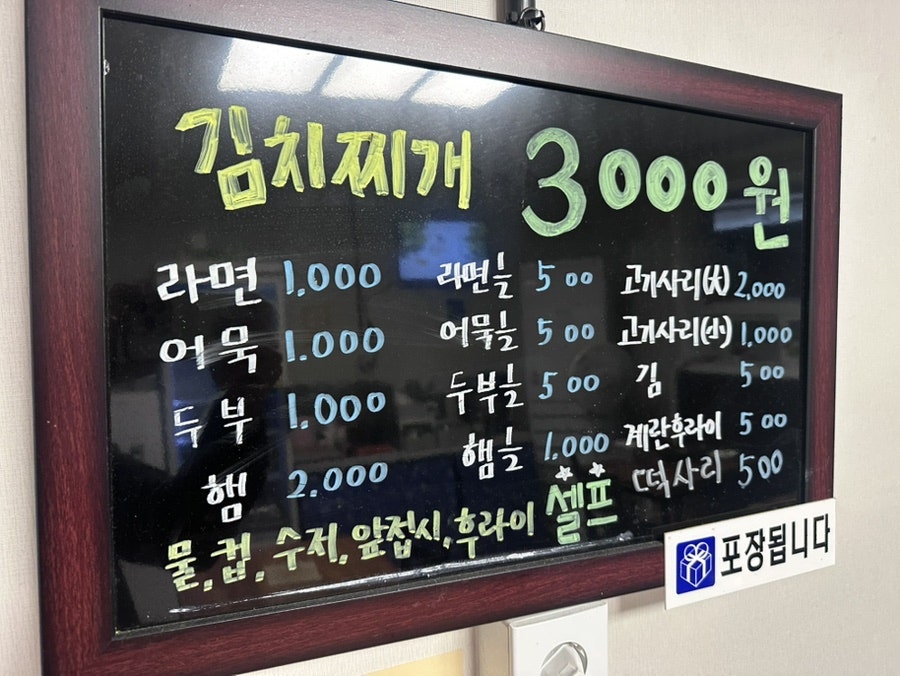 김치찌개 3000원
라면 1.000 라면½ 500 고기사리(大) 2,000
어묵 1.000 어묵½ 500 고기사리(小) 1,000
두부 1.000 두부½ 500 김 500
햄 2.000 햄½ 1.000 계란후라이 500
떡사리 500
물, 컵, 수저, 앞접시, 후라이 셀프
포장됩니다